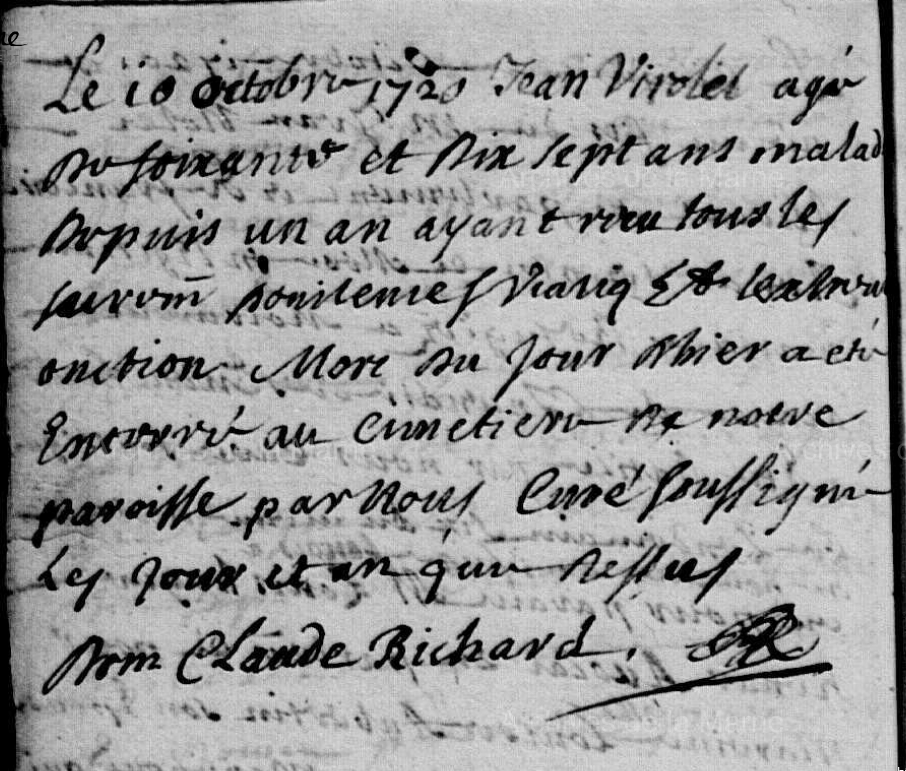 Le 10 octobre 1720 Jean Virolet agé
De soixante et Dix sept ans malad
Depuis un an ayant reçu tous les
sacrem̄ penitence Viatiq Et lextreme
onction Mort Du Jour D'hier a eté
Enterré au Cimetiere De notre
paroisse par Nous Curé soussigné
Les Jour et an que Dessus
Dom Claude Richard.